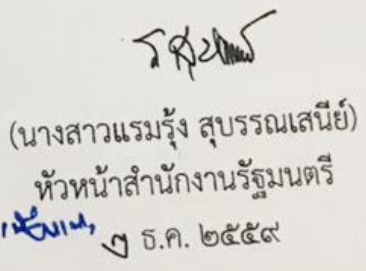 (นางสาวแรมรุ้ง สุบรรณเสนีย์)
หัวหน้าสำนักงานรัฐมนตรี
๒ ธ.ค. ๒๕๕๙